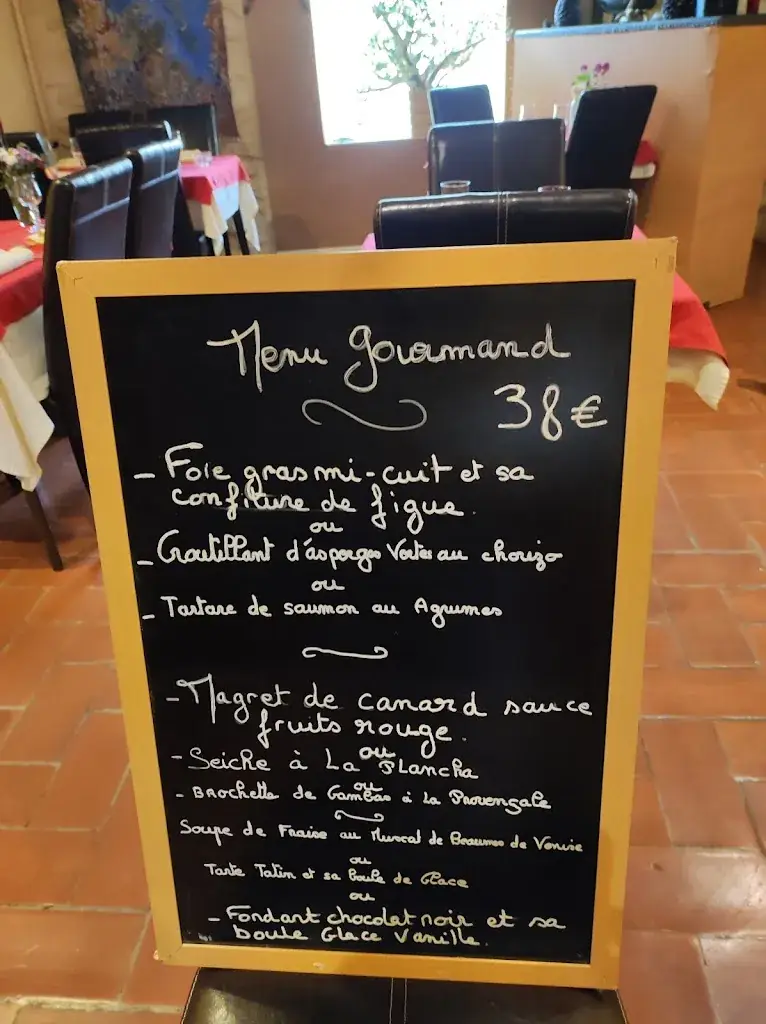 Menu gourmand
38€
- Foie gras mi-cuit et sa
confiture de figue.
ou
- Croutillant d'asperges Vertes au chorizo
ou
- Tartare de saumon au Agrumes
- Magret de canard sauce
fruits rouge.
ou
- Seiche à La Plancha
ou
- Brochette de Gambas à La Provençale
Soupe de Fraise au Muscat de Beaumes de Venise
ou
Tarte Tatin et sa boule de Glace
ou
- Fondant chocolat noir et sa
boule Glace Vanille.